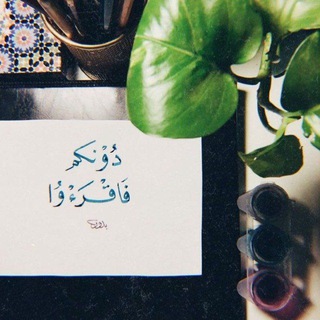 دُوْنَكم
فَاقْرَءُوْا